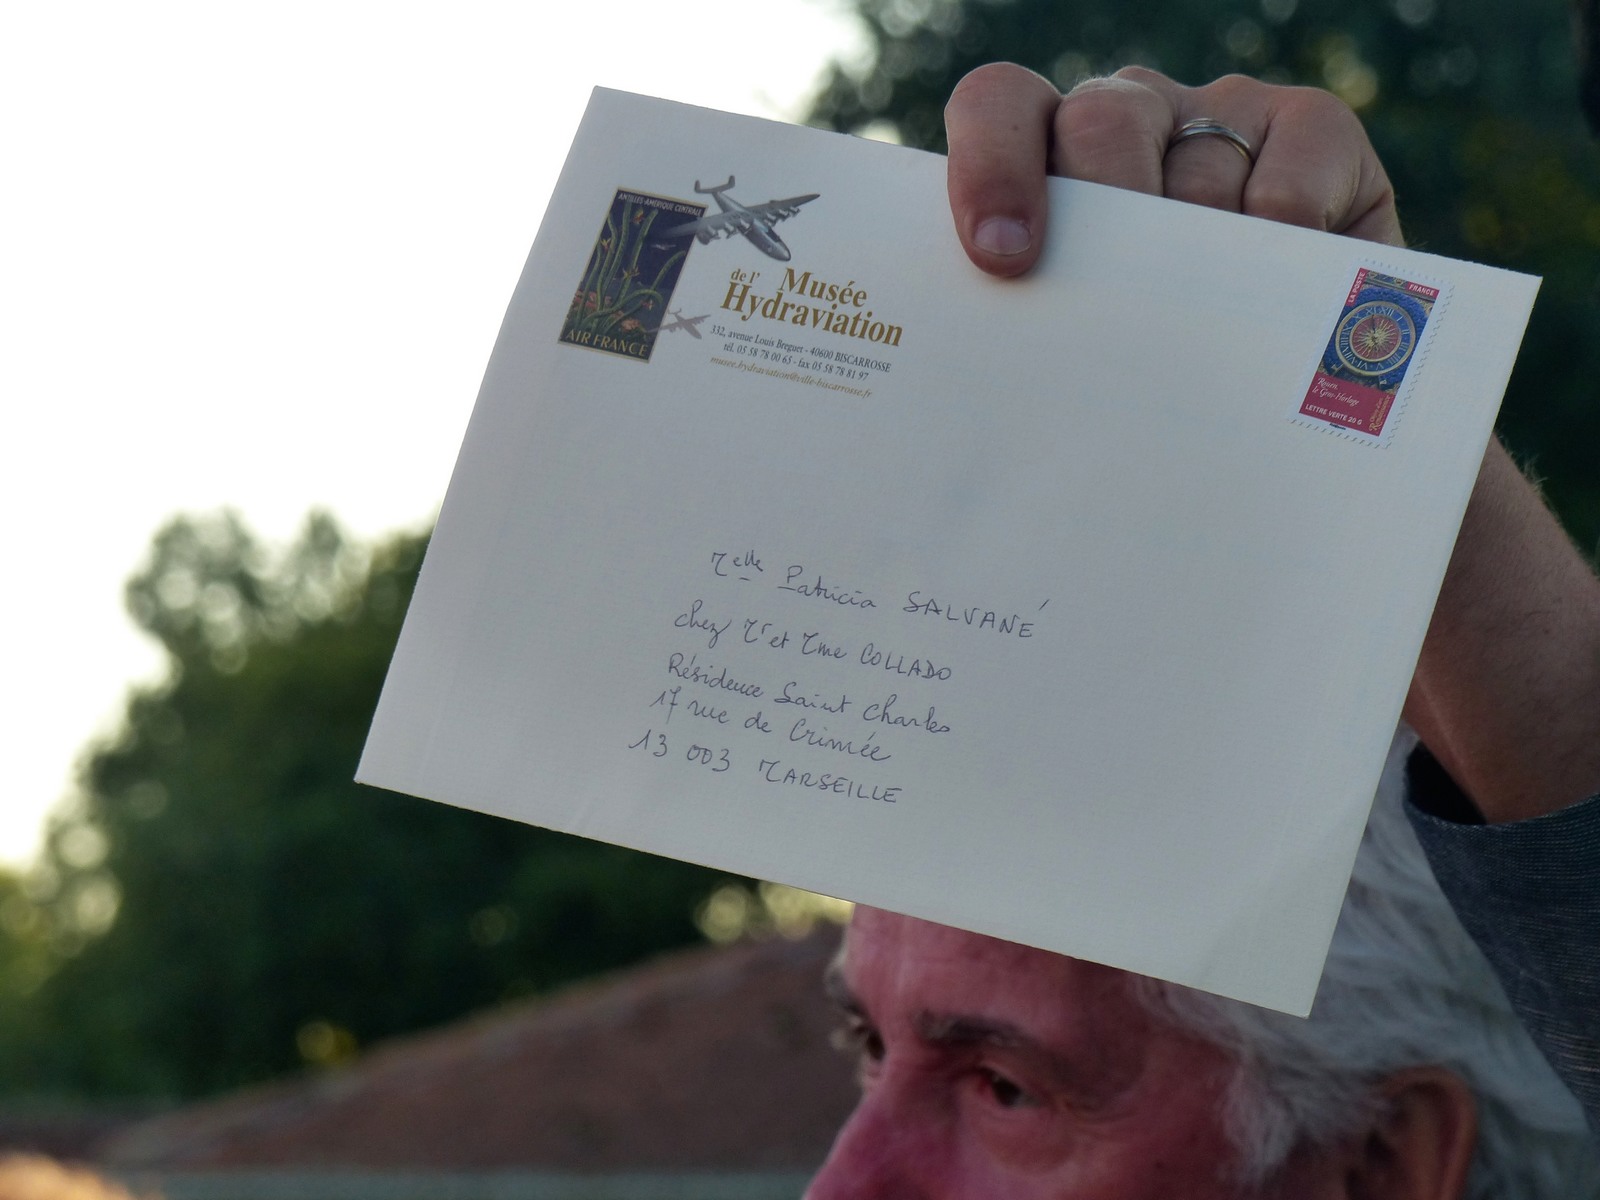 ANTILLES-AMERIQUE CENTRALE
AIR FRANCE
Musée
de l'Hydraviation
332, avenue Louis Breguet - 40600 BISCARROSSE
tél. 05 58 78 00 65 - fax 05 58 78 81 97
musee.hydraviation@ville-biscarrosse.fr
LA POSTE
FRANCE
Rouen,
le Gros-Horloge
LETTRE VERTE 20 G
Melle Patricia SALVANÉ
chez Mr et Mme COLLADO
Résidence Saint Charles
17 rue de Crimée
13 003 MARSEILLE